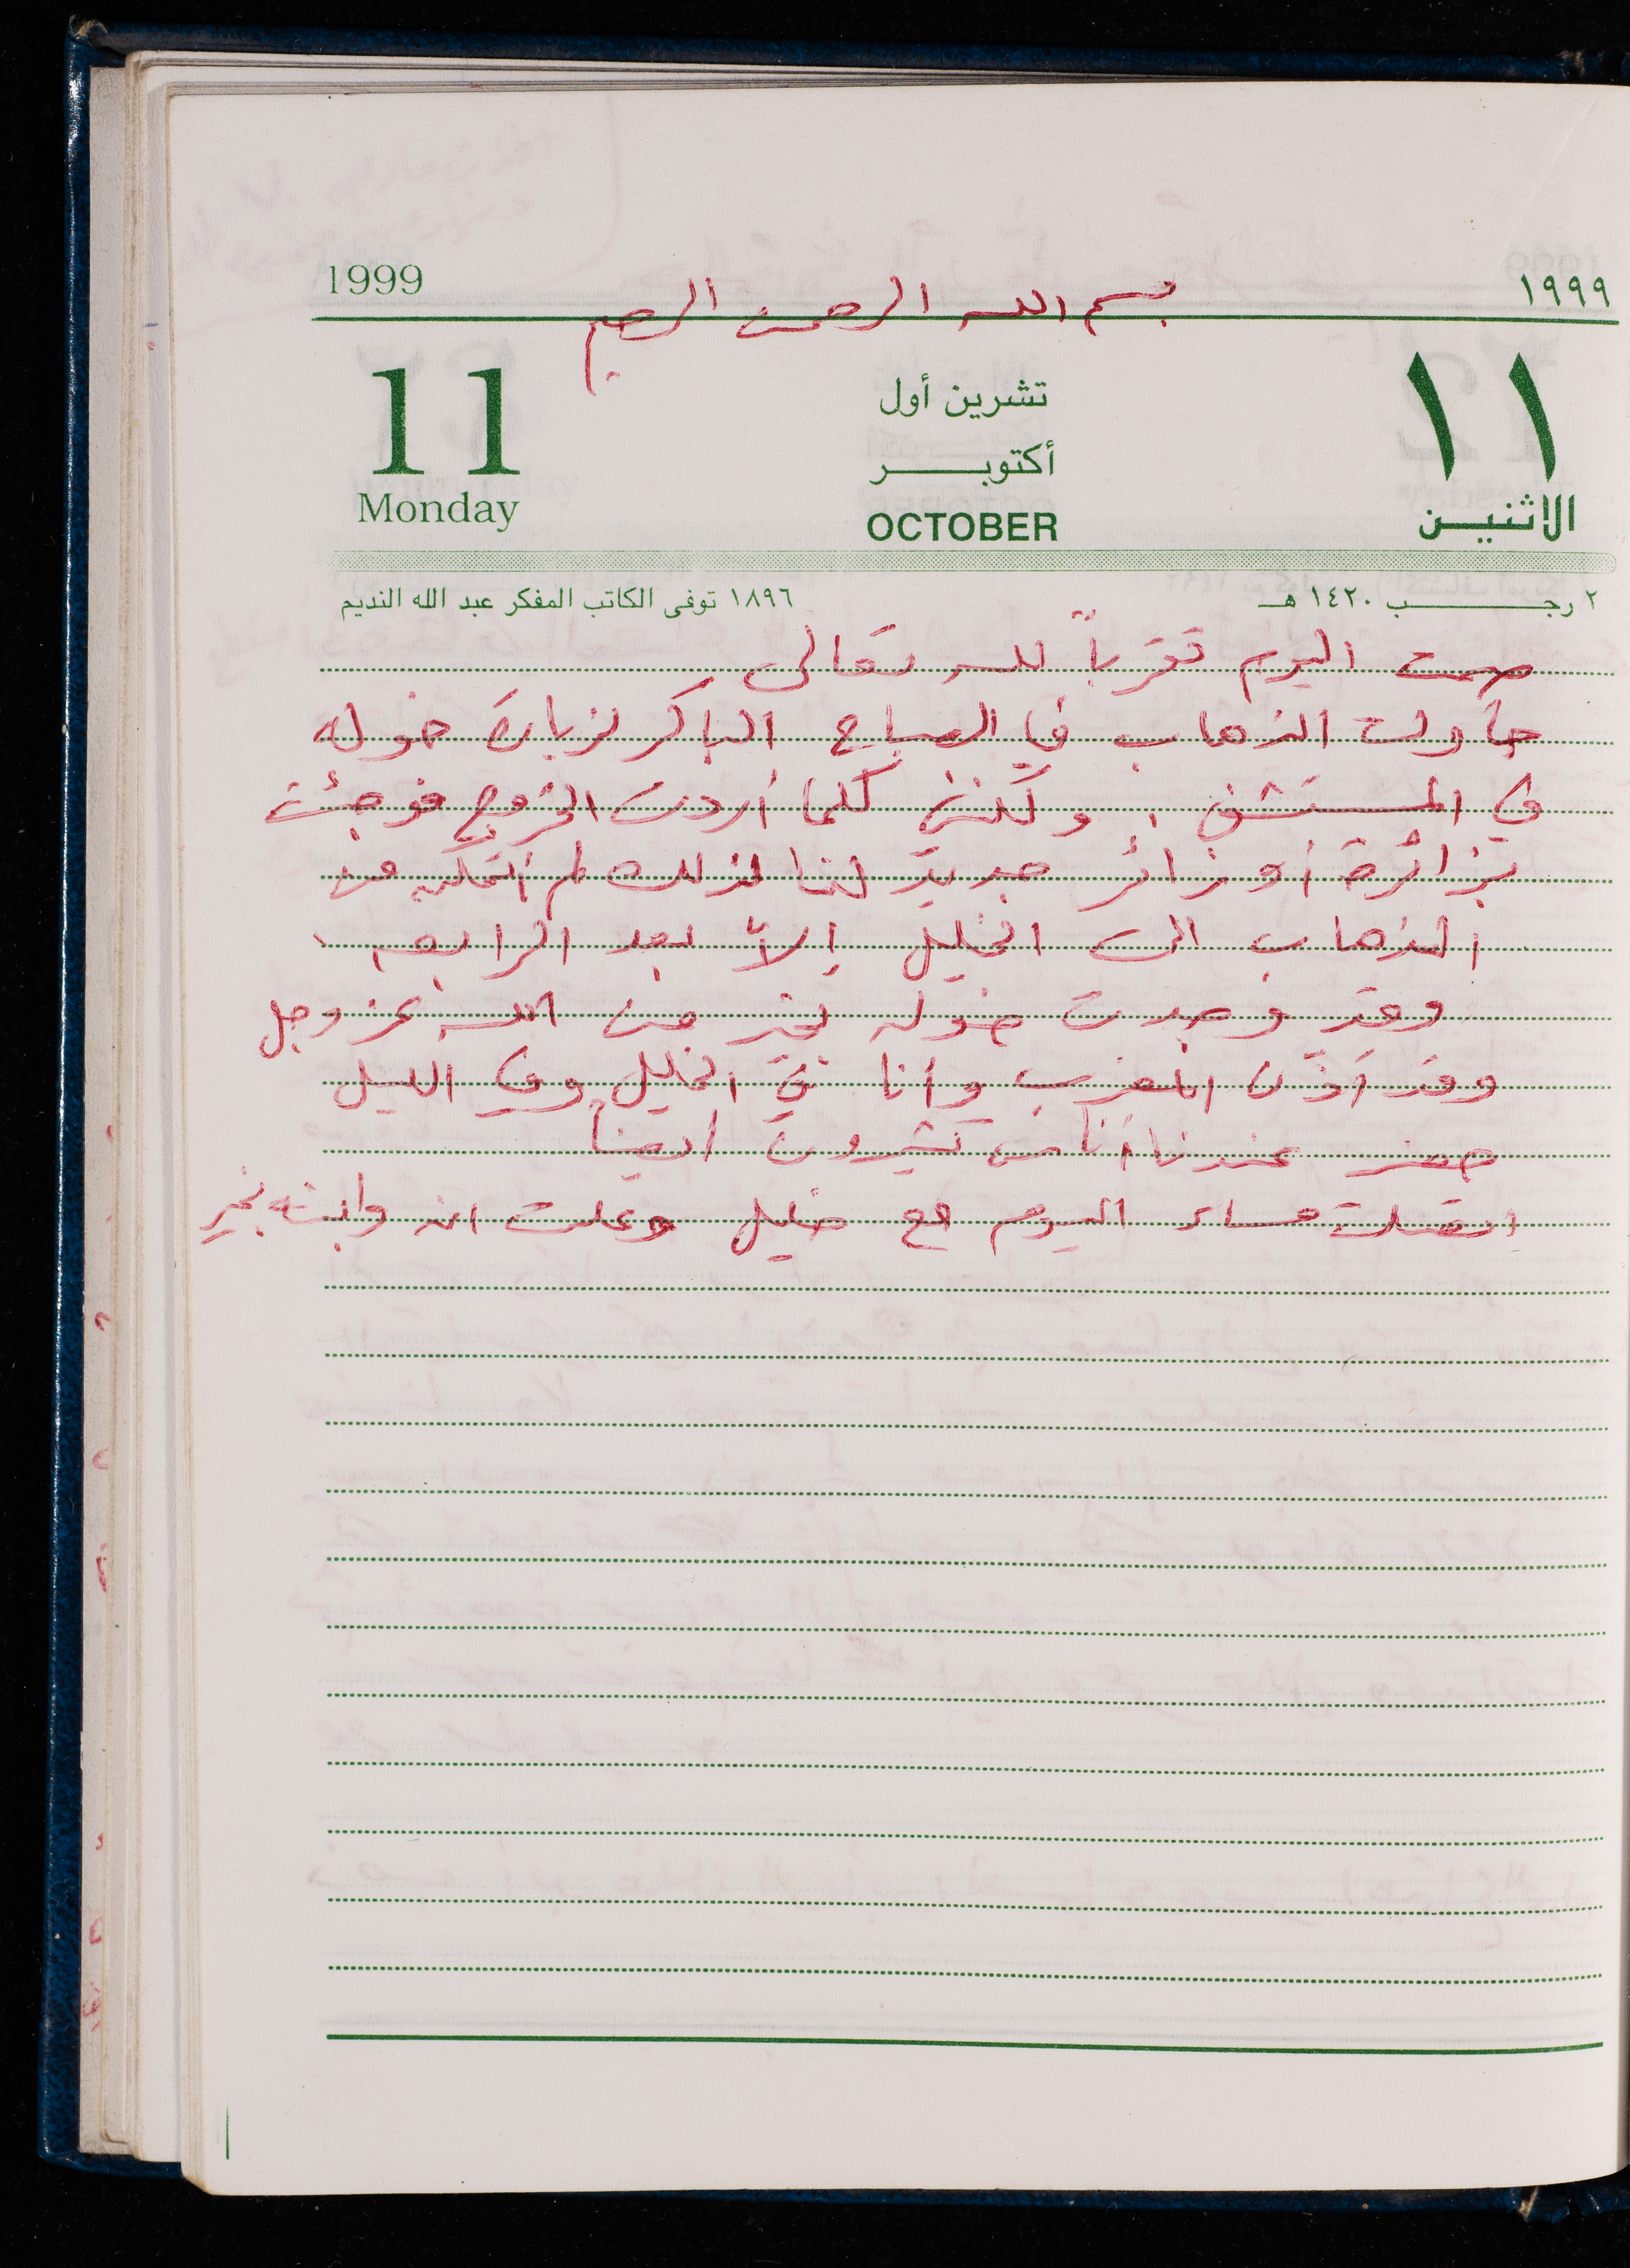 1999 ١٩٩٩
بسم الله الرحمن الرحيم
11 تشرين أول ١١
أكتوبر
Monday OCTOBER الاثنين
٢ رجب ١٤٢٠ هـ ١٨٩٦ توفى الكاتب المفكر عبد الله النديم
صمت اليوم تقرباً لله تعالى
حاولت الذهاب في الصباح الباكر لزيارة خوله
في المستشفى، ولكنني كلما أردت الخروج فوجئت
بزائرة أو زائر جديد لنا لذلك لم أتمكن من
الذهاب الى الخليل إلاّ بعد الرابعه.
وقد وجدت خوله بخير من الله عز وجل
وقد أذّن المغرب وأنا في الخليل وفي الليل
حضر عندنا أناس كثيرون أيضاً
اتصلت مساء اليوم مع خليل وعلمت انه وابنته بخير